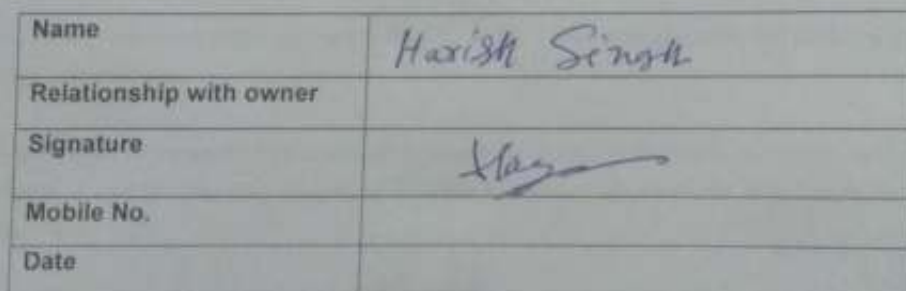 Name Harish Singh
Relationship with owner
Signature
Mobile No.
Date